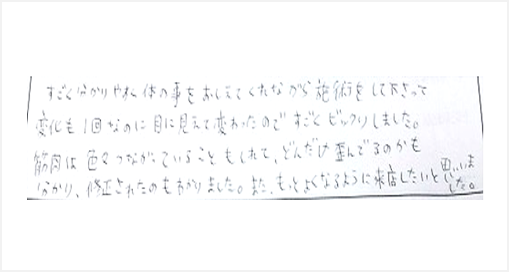 すごく分かりやすく体の事をおしえてくれながら施術をして下さって
変化も1回なのに目に見えて変わったのですごくビックリしました。
筋肉は色々つながっていることもしれて、どんだけ歪んでるのかも
分かり、修正されたのもわかりました。また、もっとよくなるように来店したいと思いました。